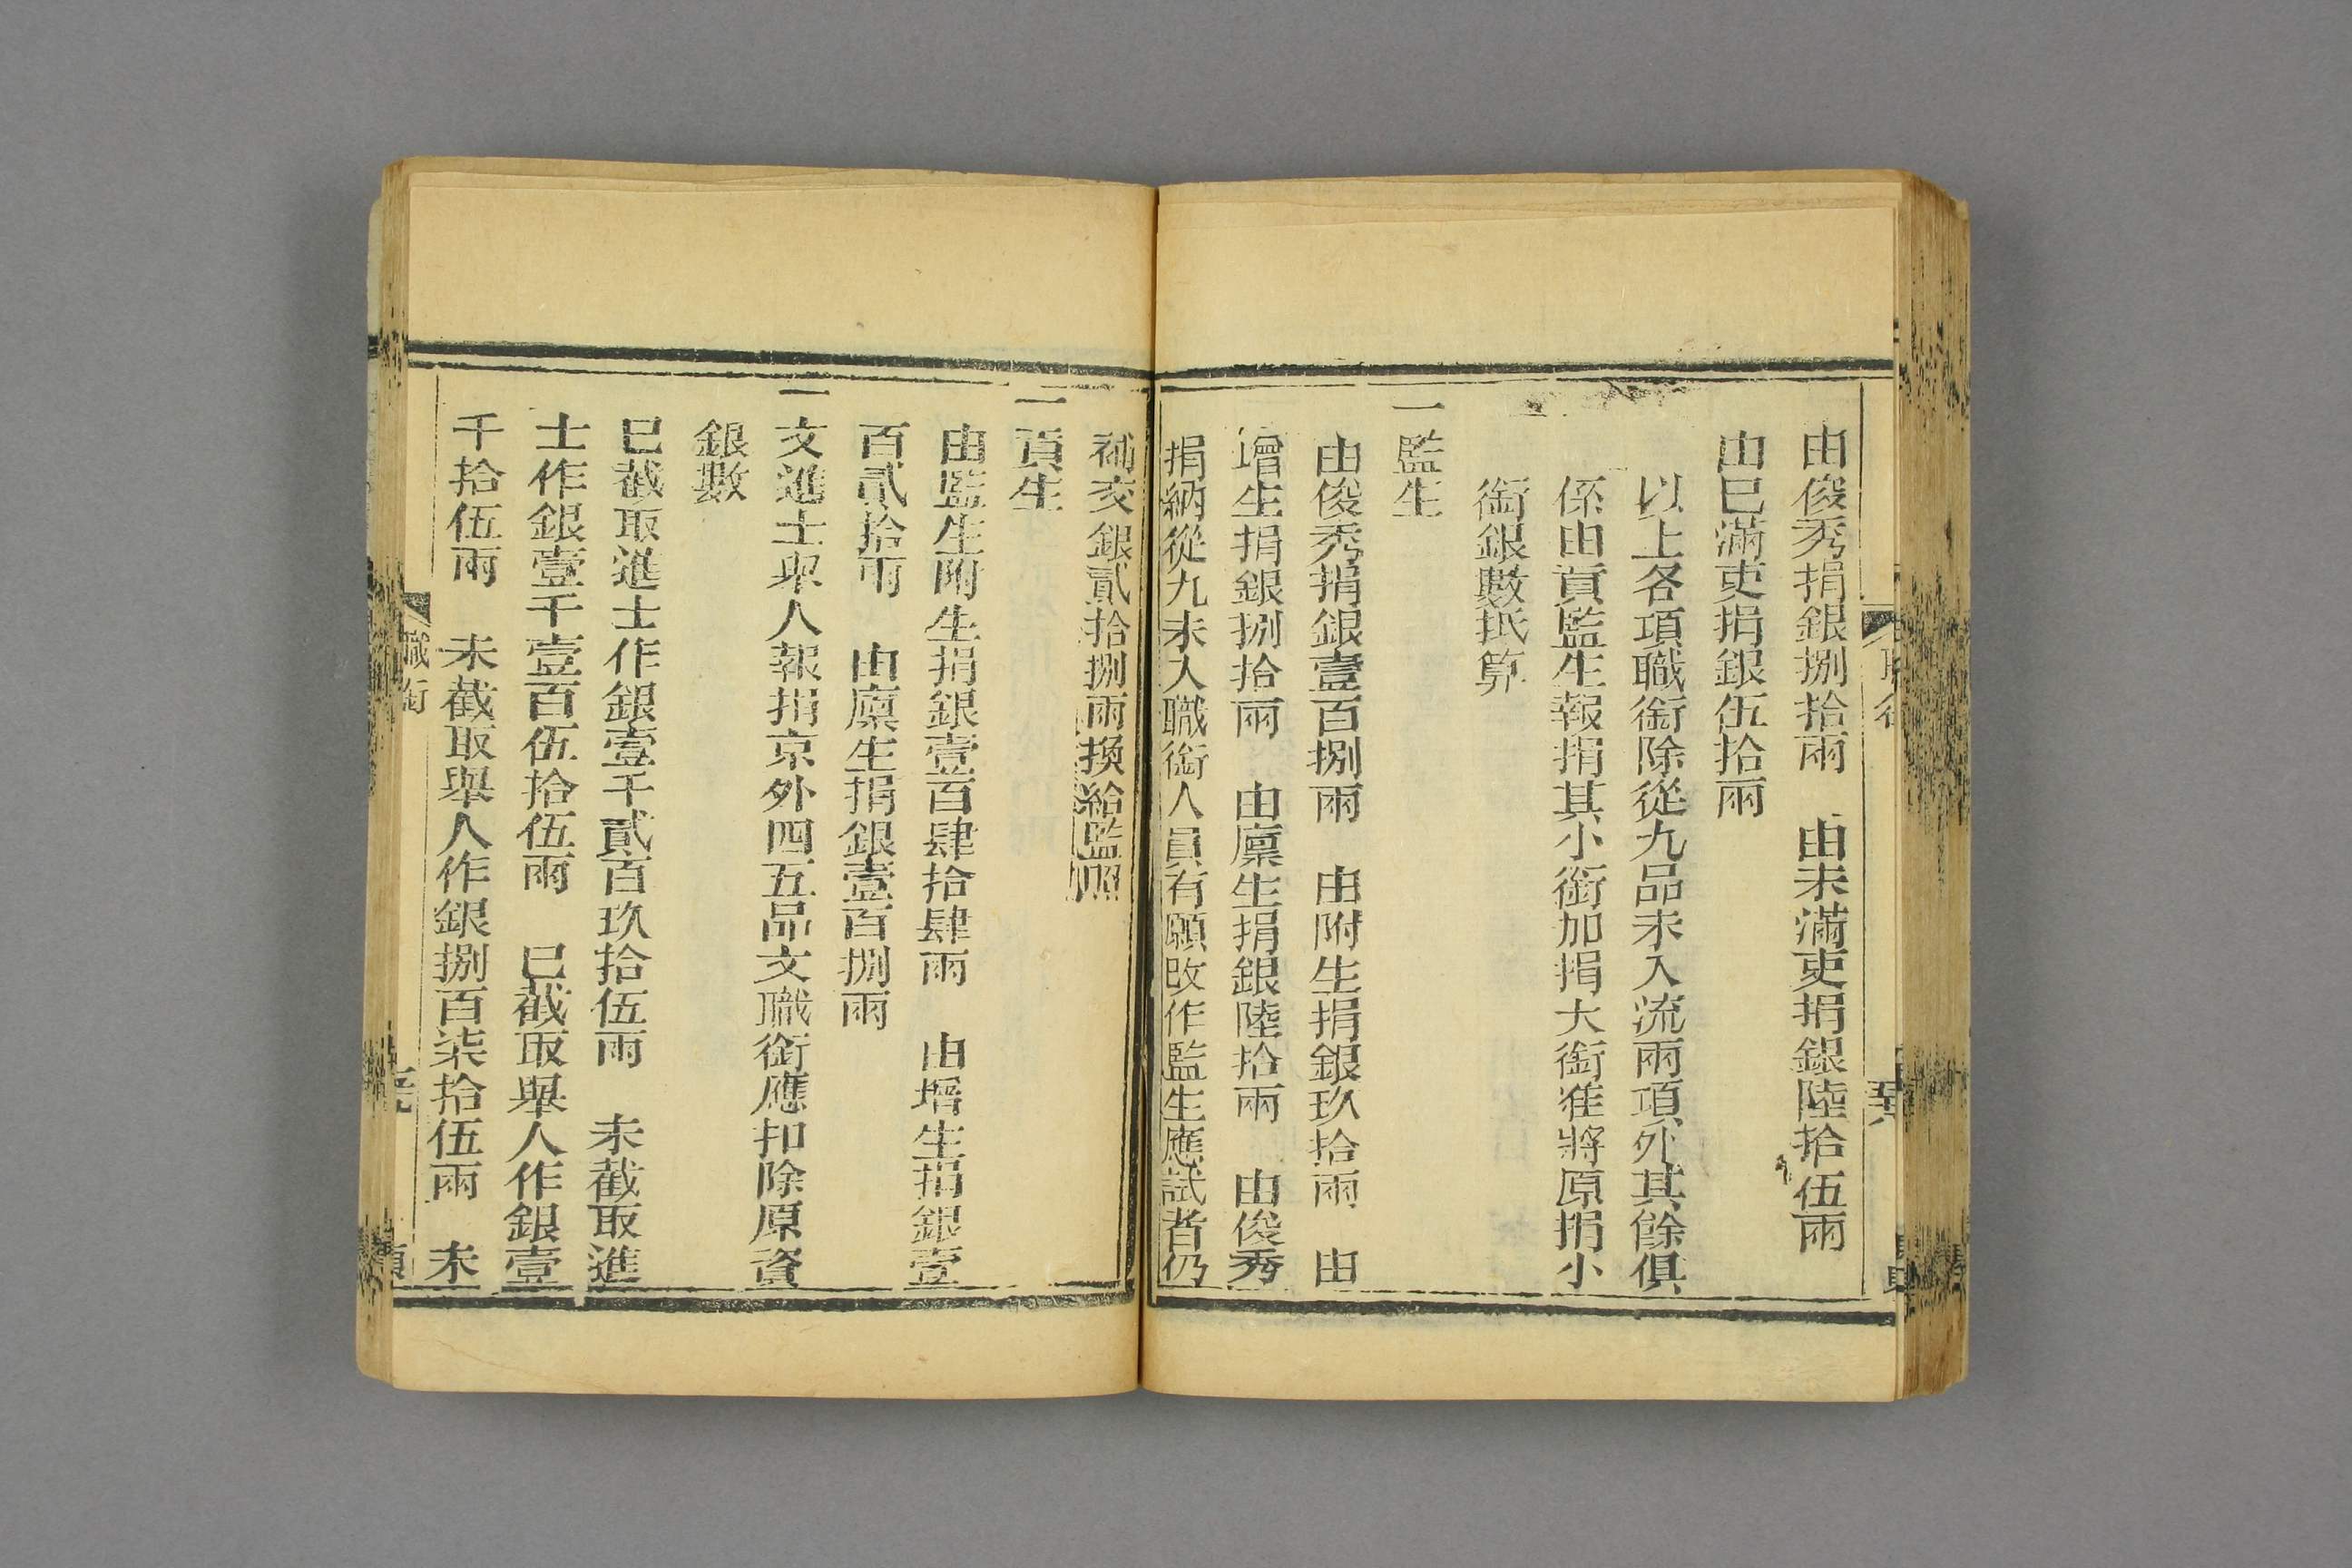 由俊秀捐銀捌拾兩　由未滿吏捐銀陸拾伍兩
由已滿吏捐銀伍拾兩
以上各項職銜除從九品未入流兩項外其餘俱
係由貢監生報捐其小銜加捐大銜准將原捐小
銜銀數抵算
一監生
由俊秀捐銀壹百捌兩　由附生捐銀玖拾兩　由
增生捐銀捌拾兩　由廩生捐銀陸拾兩　由俊秀
捐納從九未入職銜人員有願改作監生應試者仍
補交銀貳拾捌兩換給監照
一貢生
由監生附生捐銀壹百肆拾肆兩　由增生捐銀壹
百貳拾兩　由廩生捐銀壹百捌兩
一文進士舉人報捐京外四五品文職銜應扣除原資
銀數
已截取進士作銀壹千貳百玖拾伍兩　未截取進
士作銀壹千壹百伍拾伍兩　已截取舉人作銀壹
千拾伍兩　未截取舉人作銀捌百柒拾伍兩　未
職銜